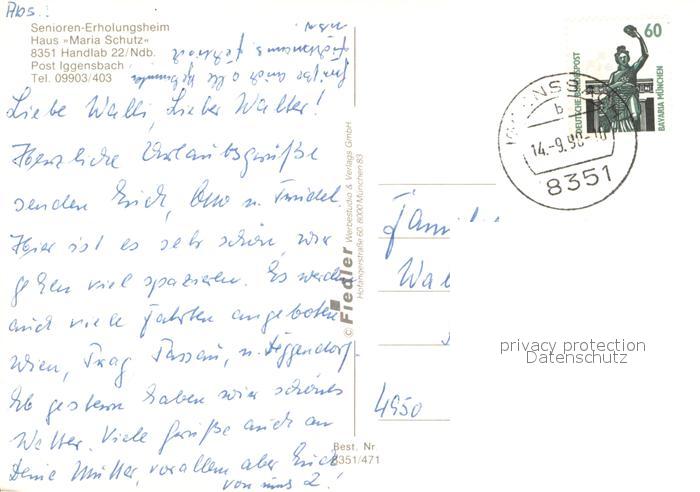 Abs.:
Senioren-Erholungsheim
Haus »Maria Schutz«
8351 Handlab 22/Ndb.
Post Iggensbach
Tel. 09903/403
Liebe Walli, Lieber Walter!
Herzliche Urlaubsgrüße
senden Euch, Otto u. Traudel.
Hier ist es sehr schön, wir
gehen viel spazieren. Es werden
auch viele Fahrten angeboten
Wien, Prag, Passau, u. Deggendorf.
Ab gestern haben wir schönes
Wetter. Viele Grüße auch an
Deine Mutter, vor allem aber Euch
von uns 2!
Grüße auch alle
© Fiedler Werbestudio & Verlags GmbH
Hofangerstraße 60, 8000 München 83
Best. Nr
8351/471
60
DEUTSCHE BUNDESPOST
BAVARIA MÜNCHEN
b
14.-9.90-10
8351
Fam
Wal
4950
privacy protection
Datenschutz